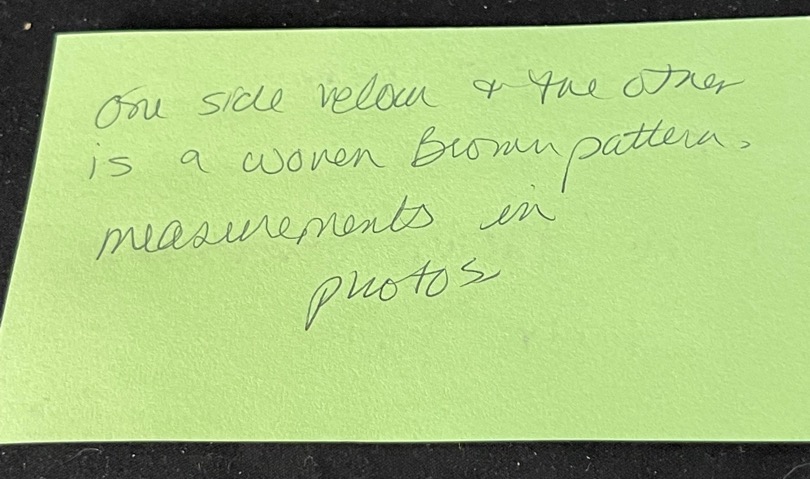 One side velour & the other
is a woven Brown pattern.
measurements in
photos